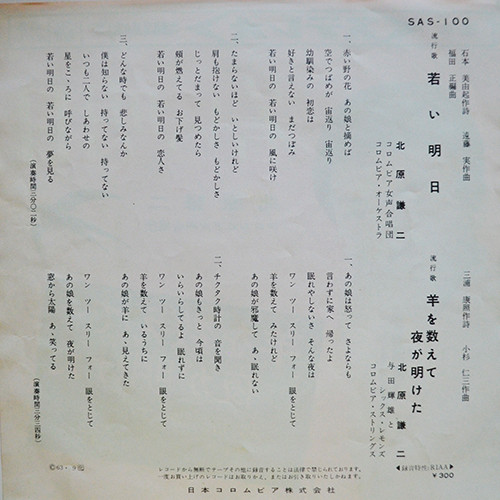 SAS-100
石本 美由起作詩 遠藤 実作曲
福田 正編曲
流行歌
若い明日
北原謙二
コロムビア女声合唱団
コロムビア・オーケストラ
一、赤い野の花 あの娘と摘めば
空でつばめが 宙返り 宙返り
幼馴染みの 初恋は
好きと言えない まだつぼみ
若い明日の 若い明日の 風に咲け
二、たまらないほど いとしいけれど
肩も抱けない もどかしさ もどかしさ
じっとだまって 見つめたら
頬が燃えてる お下げ髪
若い明日の 若い明日の 恋人さ
三、どんな時でも 悲しみなんか
僕は知らない 持ってない 持ってない
いつも二人で しあわせの
星をこゝろに 呼びながら
若い明日の 若い明日の 夢を見る
(演奏時間三分〇二秒)
三浦 康照作詩 小杉 仁三作曲
流行歌
羊を数えて
夜が明けた
北原謙二
与田輝雄と
シックス・レモンズ
コロムビア・ストリングス
一、あの娘は怒って さよならも
言わずに家へ 帰ったよ
眠れやしないさ そんな夜は
ワン ツー スリー フォー 眼をとじて
羊を数えて みたけれど
あの娘が邪魔して あゝ眠れない
二、チクタク時計の 音を聞き
あの娘もきっと 今頃は
いらいらしてるよ 眠れずに
ワン ツー スリー フォー 眼をとじて
羊を数えて いるうちに
あの娘が羊に あゝ見えてきた
ワン ツー スリー フォー 眼をとじて
あの娘を数えて 夜が明けた
窓から太陽 あゝ笑ってる
(演奏時間三分三四秒)
レコードから無断でテープその他に録音することは法律で禁じられております。
一度お買い上げのレコードはお取りかえ、またはお引き取りいたしかねます。
◀録音特性・RIAA▶
¥300
日本コロムビア株式会社